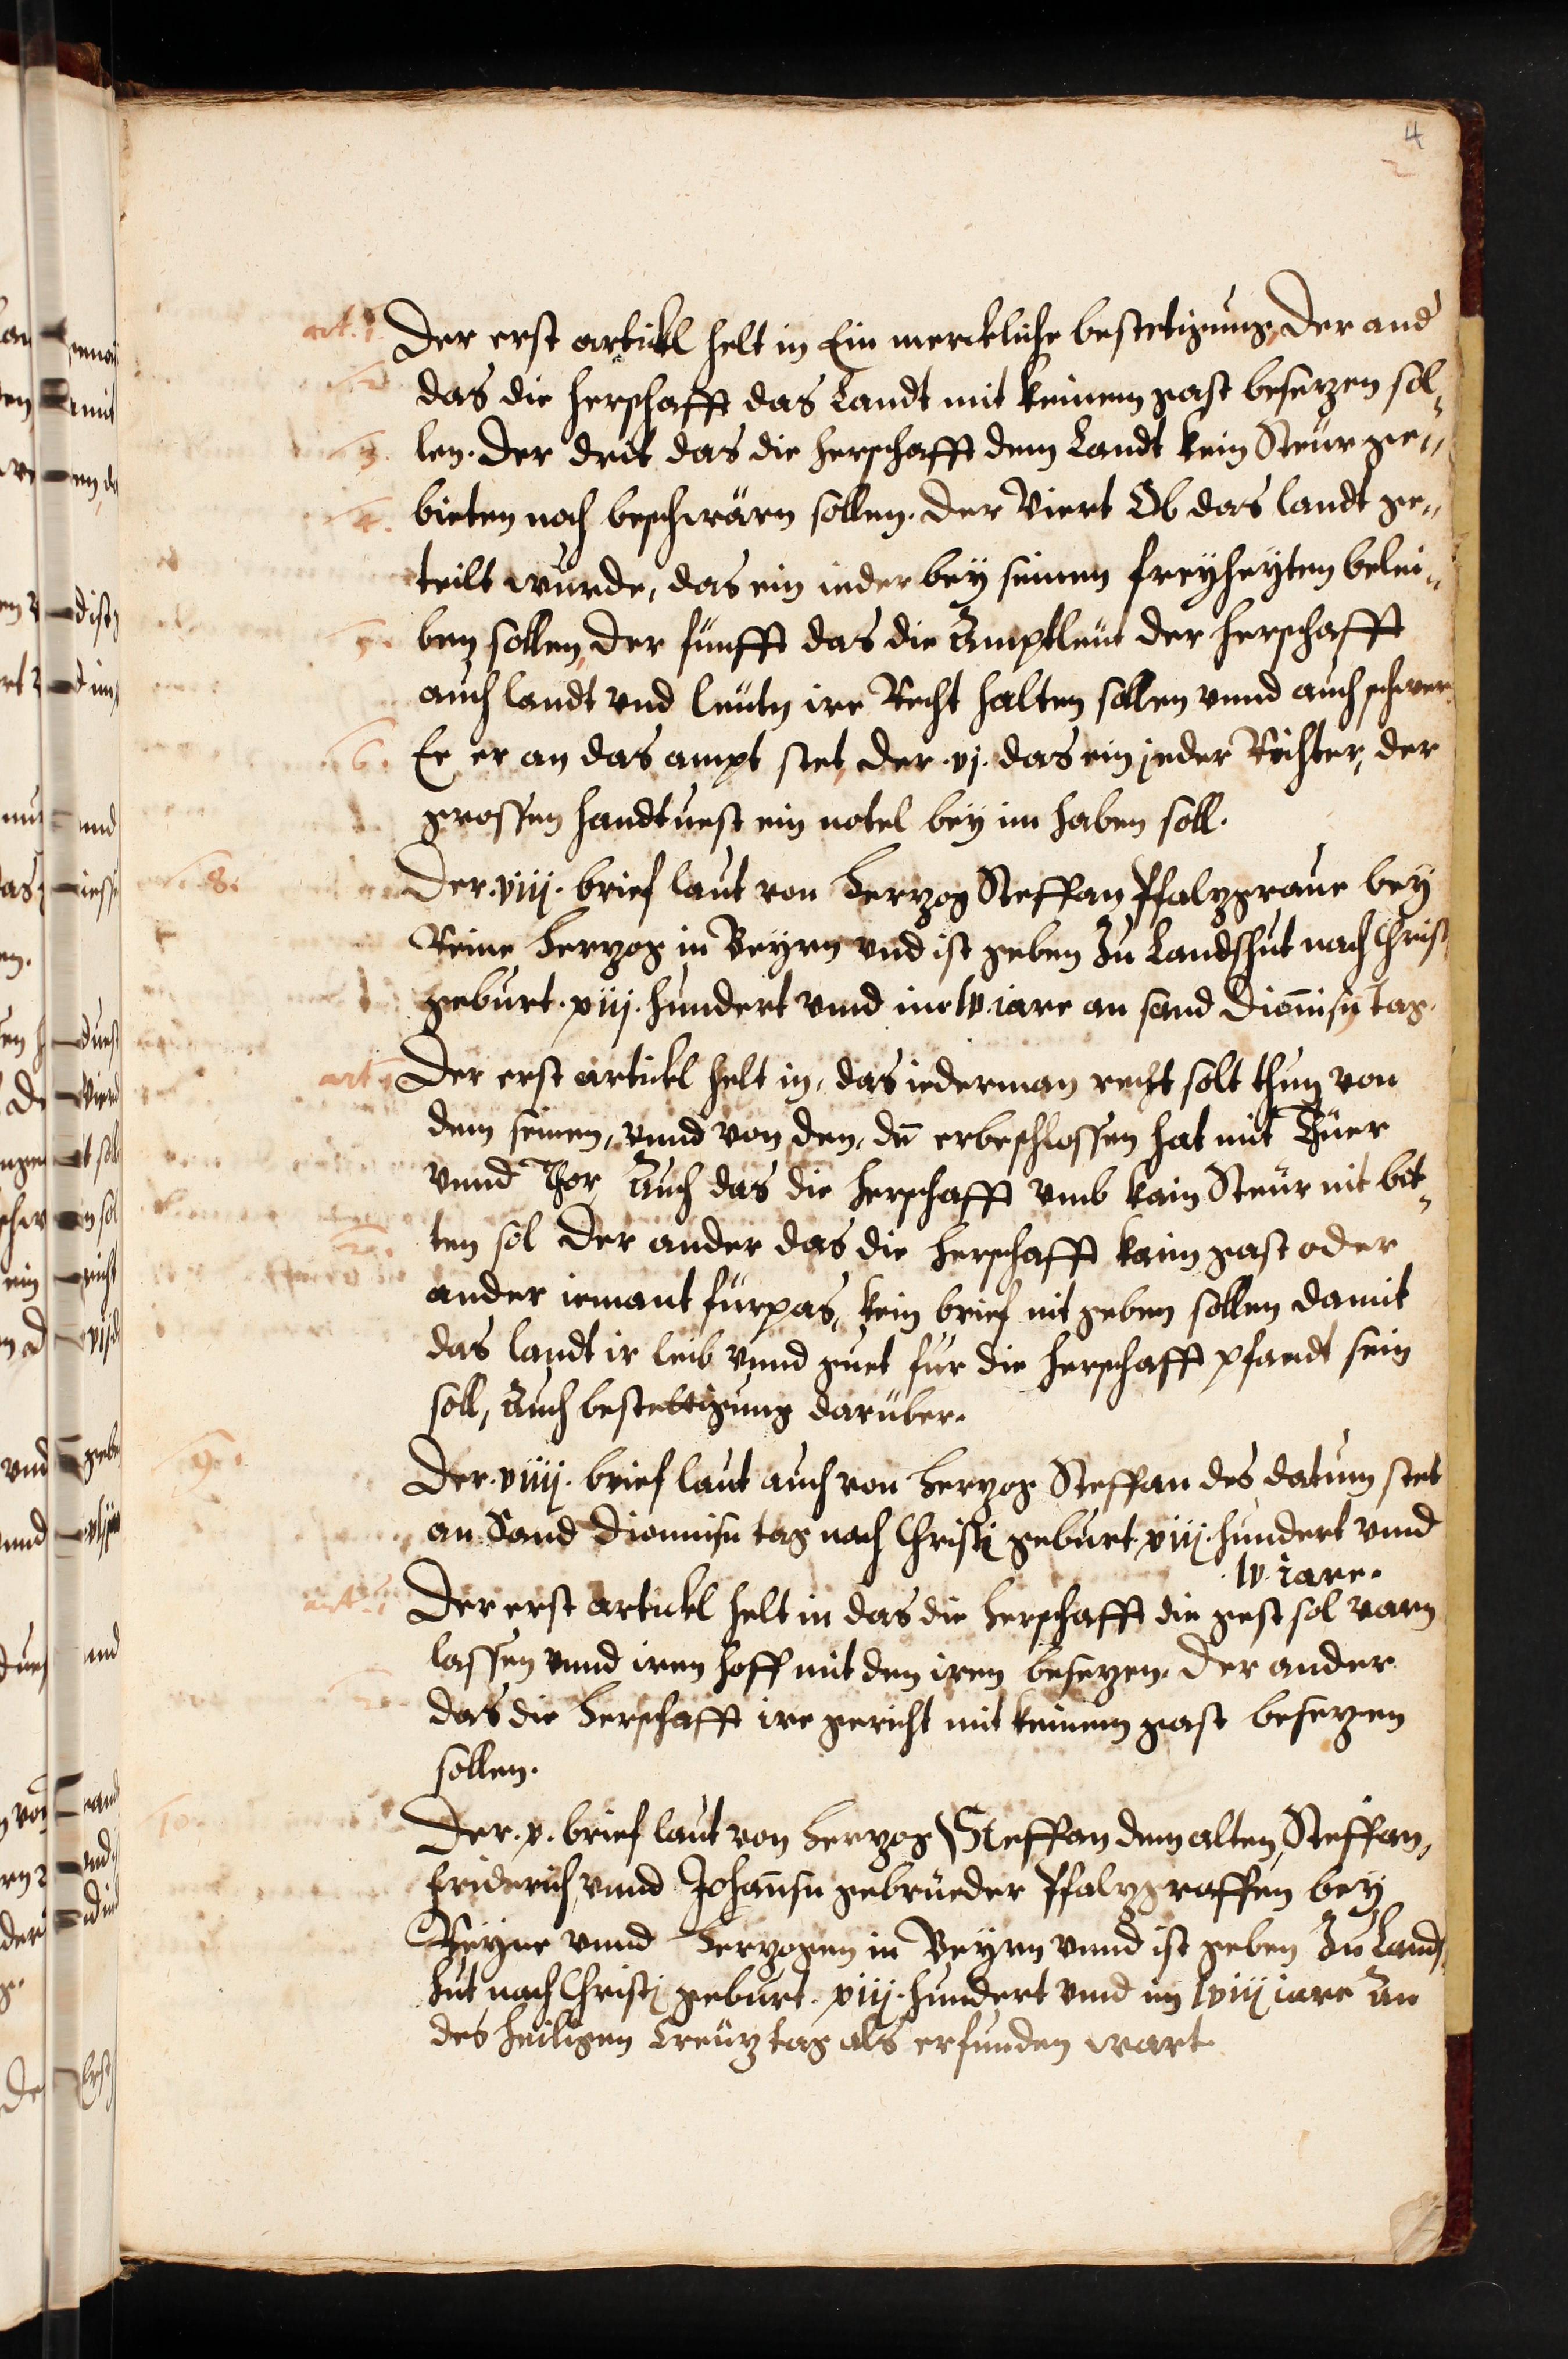 4
2
art. 1 Der erst artickl helt in Ein merckliche bestetigung, der and
2 das die herschafft das Landt mit keinem gast besetzen sol„
3. len. Der drit das die herschafft dem Landt kein Steur ge„
4. bieten noch beschwärn sollen. Der Viert Ob das landt ge„
teilt wurde, das ein ieder bey seinen freyheyten belei„
5. ben sollen, Der fünfft das die Amptleut der herschafft
auch landt vnd leuten ire Recht halten sollen vnnd auch schwer
6. Ee er an das ampt stet, Der .vj. das ein jeder Richter, der
grossen handtuest ein notel bey im haben soll.
8. Der .viij. brief laut von Hertzog Steffan Pfaltzgraue bey
Reine Hertzog in Beyrn vnd ist geben Zu Landshut nach Christ
geburt .xiij. hundert vnnd ime lv. iare an sand Dionisy tag.
art 1 Der erst artickl helt in, das iederman recht solt thun von
dem seinen, vnnd von den, dẽ er beschlossen hat mit Tüer
vnnd Thor, Auch das die herschafft vmb kain Steur nit bit„
2. ten sol Der ander das die herschafft kaim gast oder
ander iemant fürpas, kein brief nit geben sollen damit
das landt ir leib vnnd guet für die herschafft pfandt sein
soll, Auch bestettigung darüber.
9. Der .viiij. brief laut auch von Hertzog Steffan des datum stet
an Sand Dionnisii tag nach Christi geburt xiij. hundert vnnd
lv. iare.
art. 1 Der erst artickl helt in das die Herschafft die gest sol varn
lassen vnnd iren hoff mit den iren besetzen. Der ander
2. das die Herschafft ire gericht mit keinem gast besetzen
sollen.
10. Der .x. brief laut von Hertzog Steffan dem alten, Steffan,
Friderich, vnnd Johannsn gebrüeder Pfaltzgraffen bey
Reyne vnnd Hertzogen in Beyrn vnnd ist geben Zu Lands„
hut nach Christi geburt .xiij. hundert vnnd im lviij iare An
des heiligen Creütz tag als erfunden wart